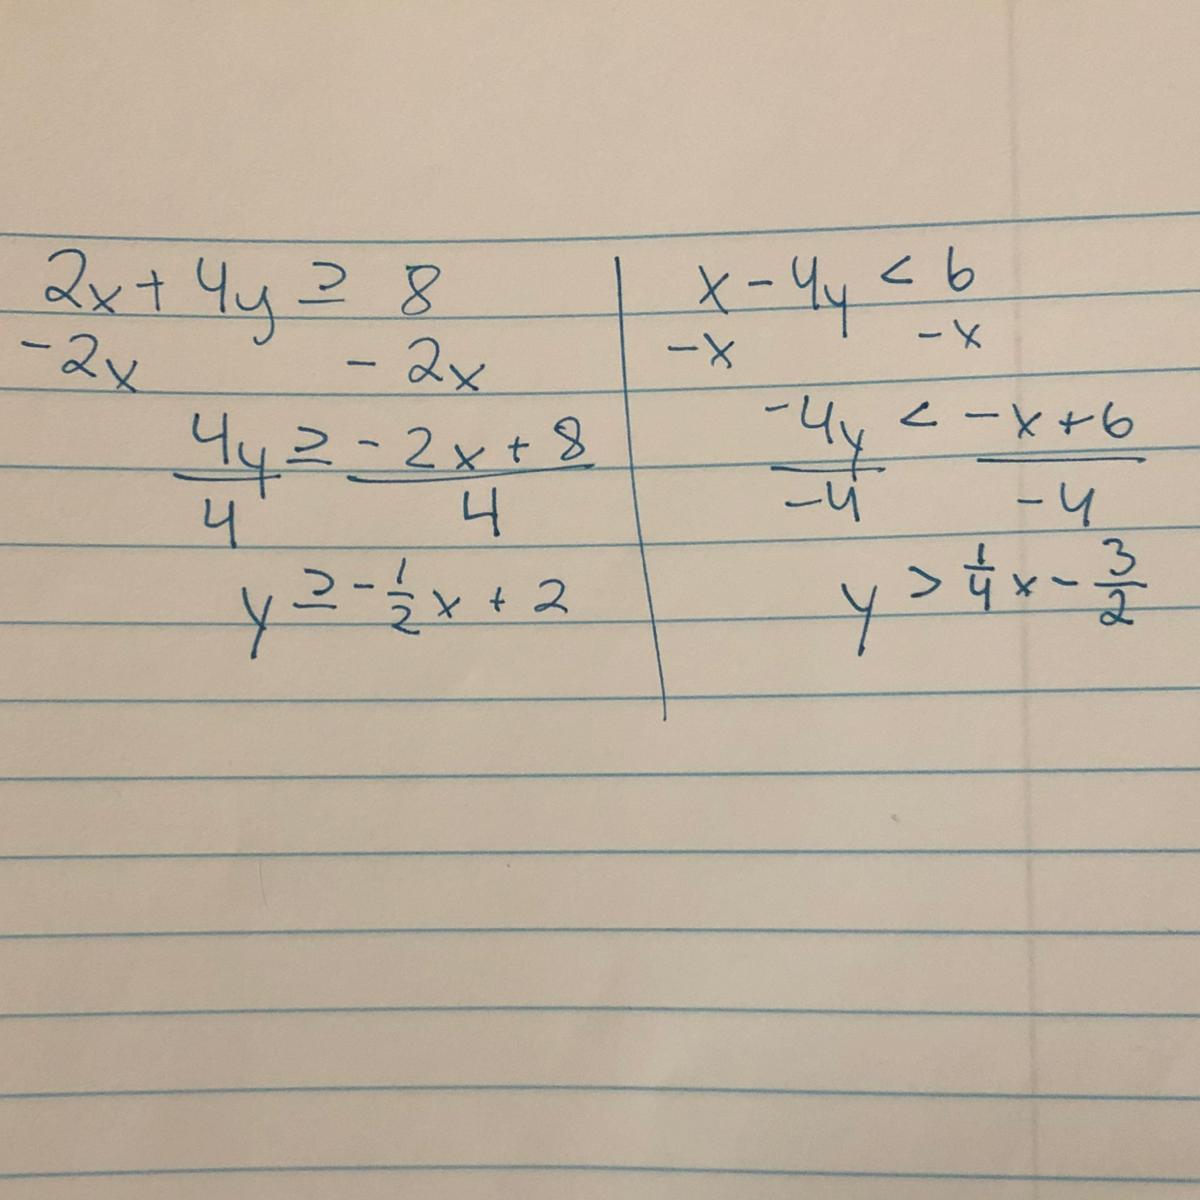 2x + 4y ≥ 8
-2x - 2x
4y ≥ -2x + 8
4 4
y ≥ -1/2 x + 2
x - 4y < 6
-x -x
-4y < -x + 6
-4 -4
y > 1/4 x - 3/2